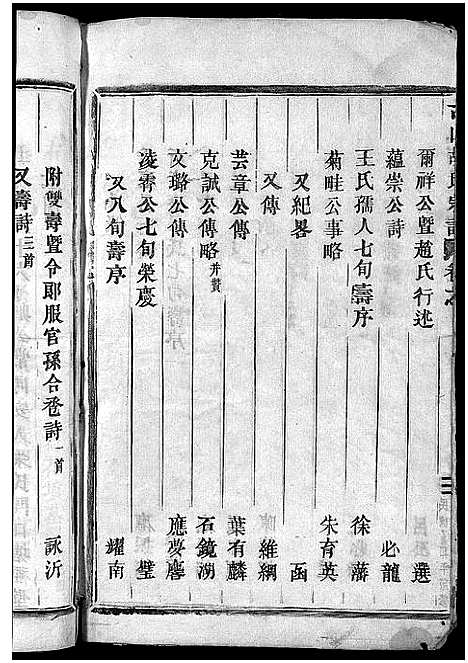 爾祥公暨趙氏行述 選
蘊崇公詩 必龍
王氏孺人七旬壽序 徐藩
菊畦公事略 朱育英
又紀畧 函
又傳 維綱
芸章公傳 葉有麟
克誠公傳略并贊 石鏡湖
文璐公傳 應夢麐
淩霄公七旬榮慶 璧
又八旬壽序 耀南
附雙壽暨令郎服官孫合巹詩一首 詠沂
又壽詩三首